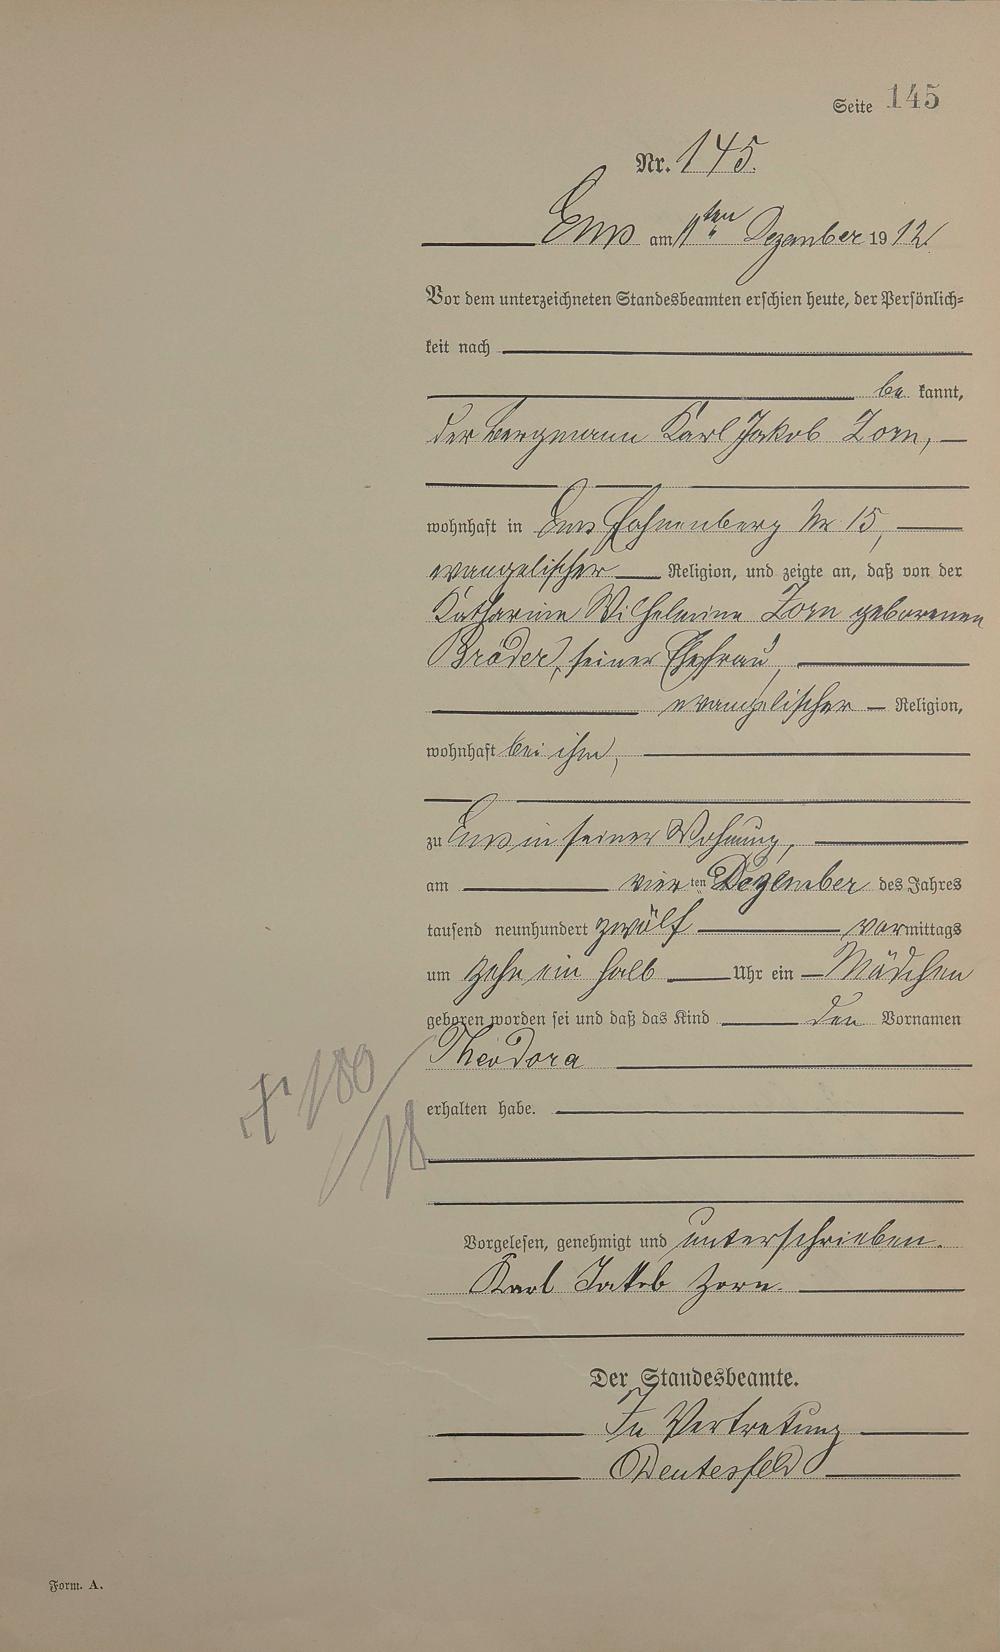 Seite 145
Nr. 145.
Ems am 11ten Dezember 1912.
Vor dem unterzeichneten Standesbeamten erschien heute, der Persönlich-
keit nach
be kannt,
der Bergmann Karl Jakob Zorn,
wohnhaft in Ems Hahnenberg Nr 15,
evangelischer Religion, und zeigte an, daß von der
Katharine Wilhelmine Zorn geborenen
Bröder, seiner Ehefrau,
evangelischer Religion,
wohnhaft bei ihm,
zu Ems in seiner Wohnung,
am vierten Dezember des Jahres
tausend neunhundert zwölf vormittags
um zehn ein halb Uhr ein Mädchen
geboren worden sei und daß das Kind den Vornamen
Theodora
erhalten habe.
+ 180/18
Vorgelesen, genehmigt und unterschrieben.
Karl Jakob Zorn.
Der Standesbeamte.
In Vertretung
Form. A.